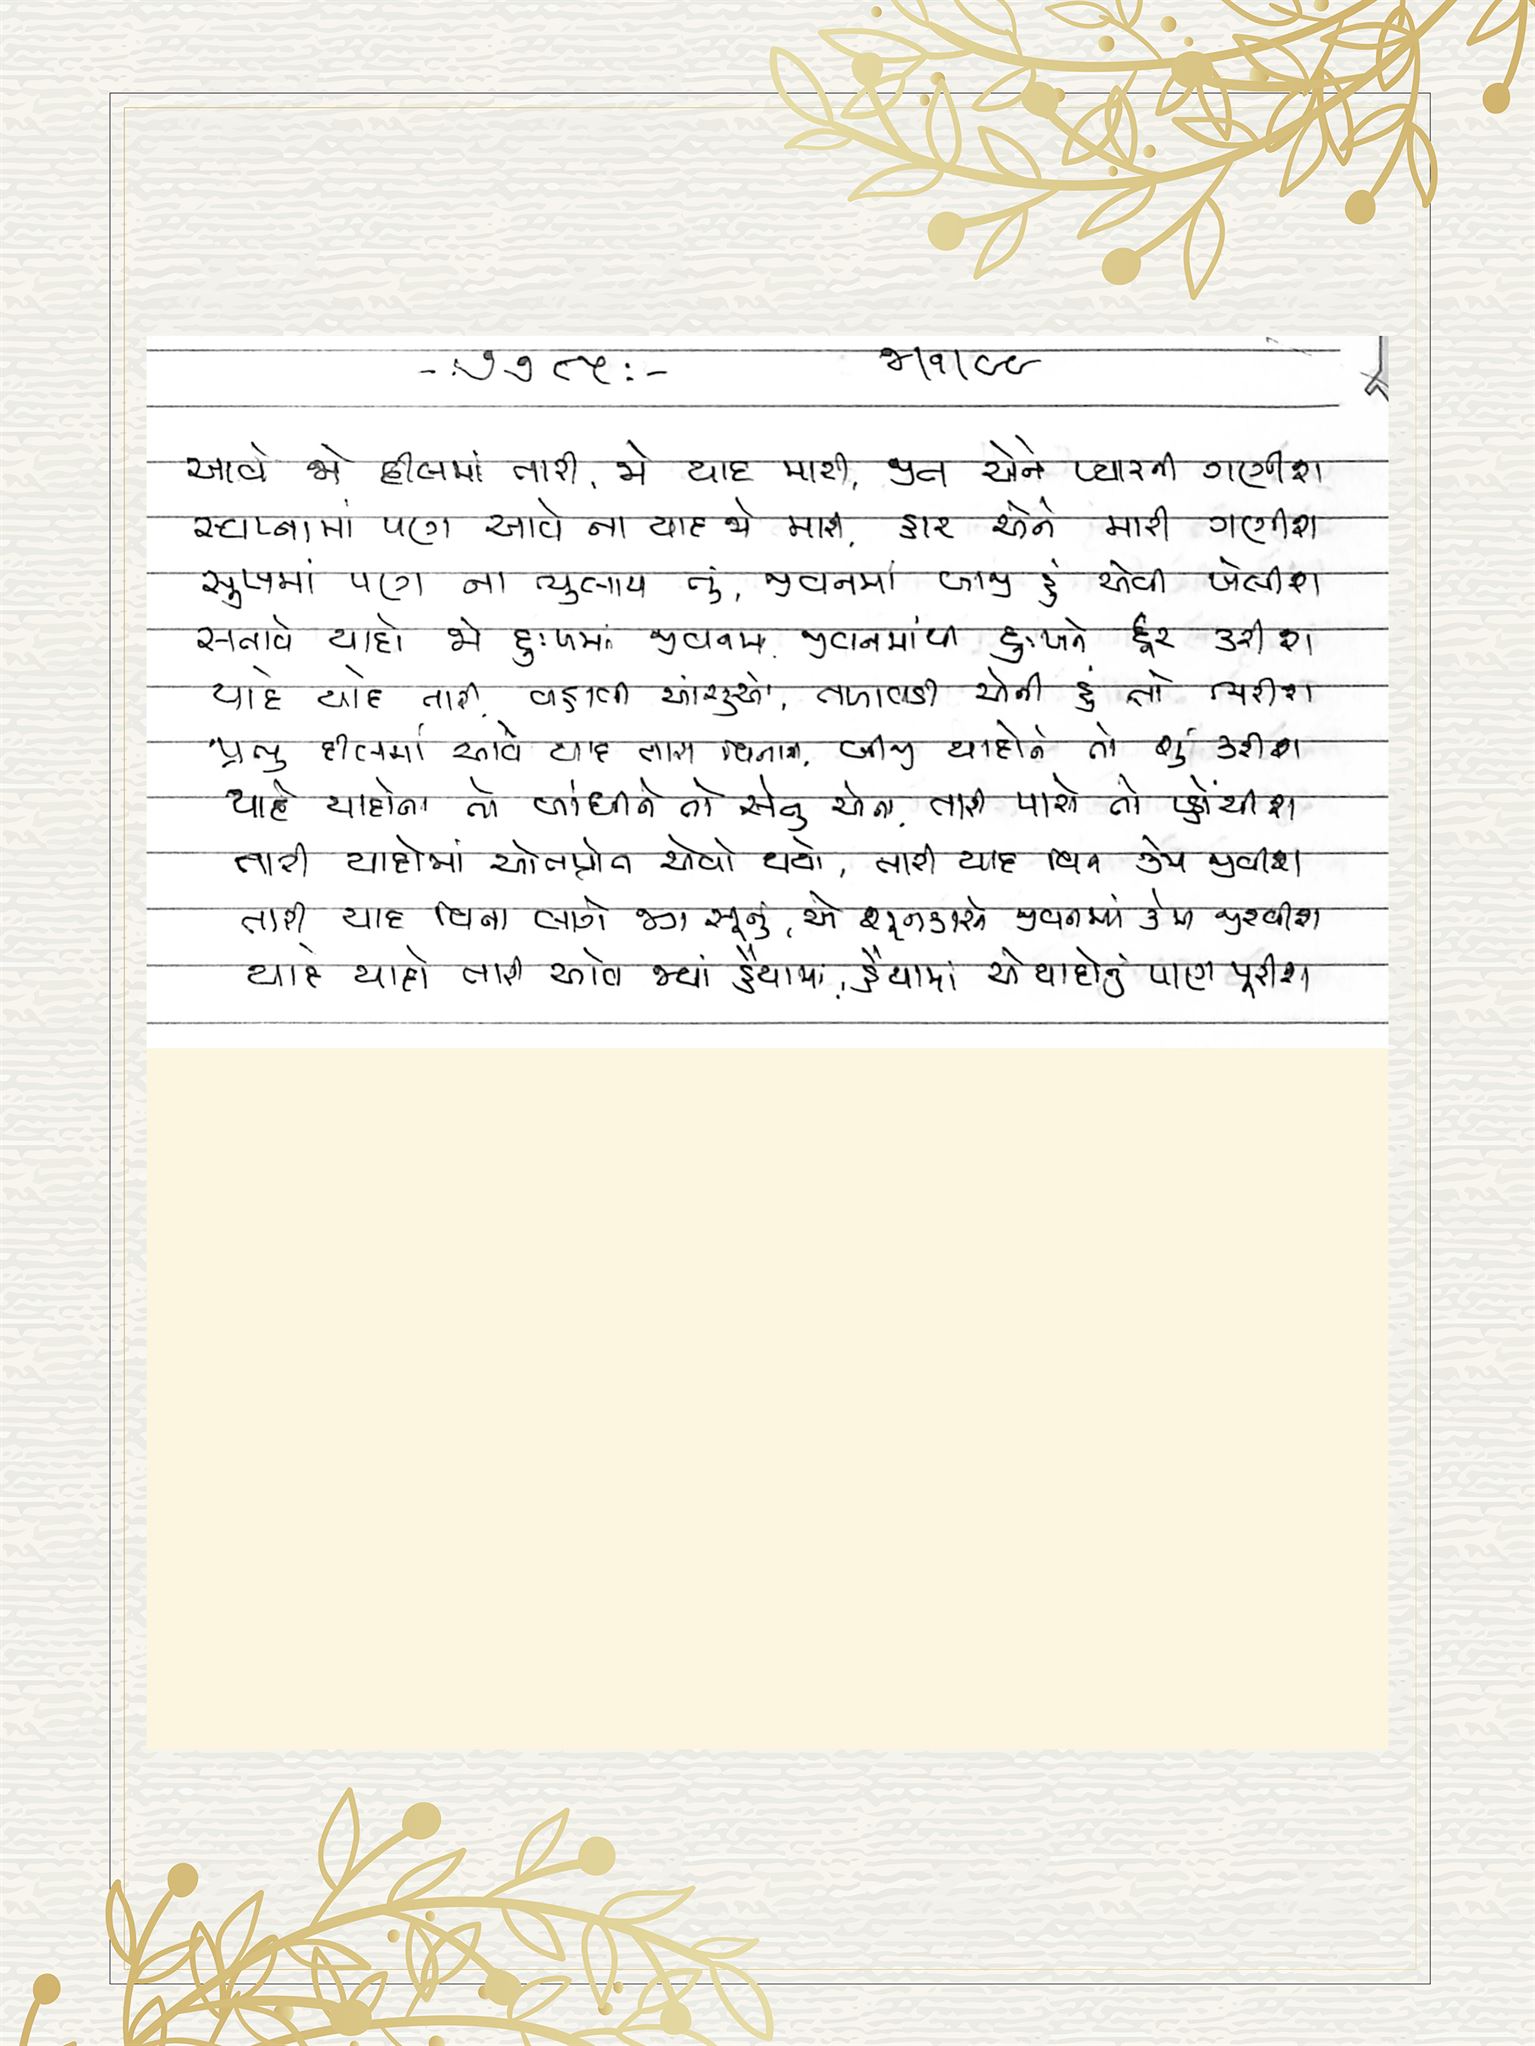 આવે જો દીલમાં તારી, જો યાદ મારી, જીત એને પ્યારની ગણીશ
સ્વપ્નામાં પણ આવે ના યાદ જો મારી, હાર એને મારી ગણીશ
સુખમાં પણ ના ભુલાય તું, જીવનમાં બાજી હું એવી ખેલીશ
સતાવે યાદો જો દુઃખમાં જીવનમાં, જીવનમાંથી દુઃખને દૂર કરીશ
યાદે યાદે તારી, વહાવી આંસુઓ, તળાવડી એની હું તો ભરીશ
પ્રભુ દીલમાં આવે યાદ તારા વિનાની, બીજી યાદોને તો શું કરીશ
યાદે યાદોના તો બાંધીને તો સેતુ એના, તારી પાસે તો પહોંચીશ
તારી યાદોમાં ઓતપ્રોત એવો થયો, તારી યાદ વિના કેમ જીવીશ
તારી યાદ વિના લાગે જગ સૂનું, એ સૂનકારને જીવનમાં કેમ જીરવીશ
યાદે યાદો તારી આવે જ્યાં હૈયામાં, હૈયામાં એ યાદોનું પાણી પૂરીશ